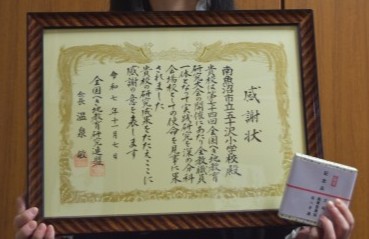 感謝状
南魚沼市立五十沢小学校殿
貴校は第七十四回全国へき地教育
研究大会の開催にあたり全教職員
一体となって実践研究を深め分科
会場校としての使命を見事に果
されました
貴校の研究成果をたたえここに
感謝の意を表します
令和七年十一月七日
全国へき地教育研究連盟
会長 温泉 敏